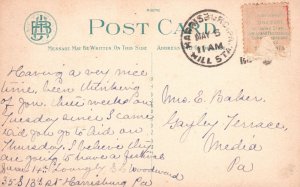 POST CARD
MESSAGE MAY BE WRITTEN ON THIS SIDE
HARRISBURG, PA.
MAY 5
11 AM
HILL STA.
Having a very nice
time, been thinking
of you these weeks on
Tuesday since I came
did you go to Aid on
Thursday. I believe they
are going to have a festival
June 14th Lovingly
Woodward
35 S 13th St Harrisburg Pa
Mrs E. Baker.
Gayley Terrace,
Media
Pa